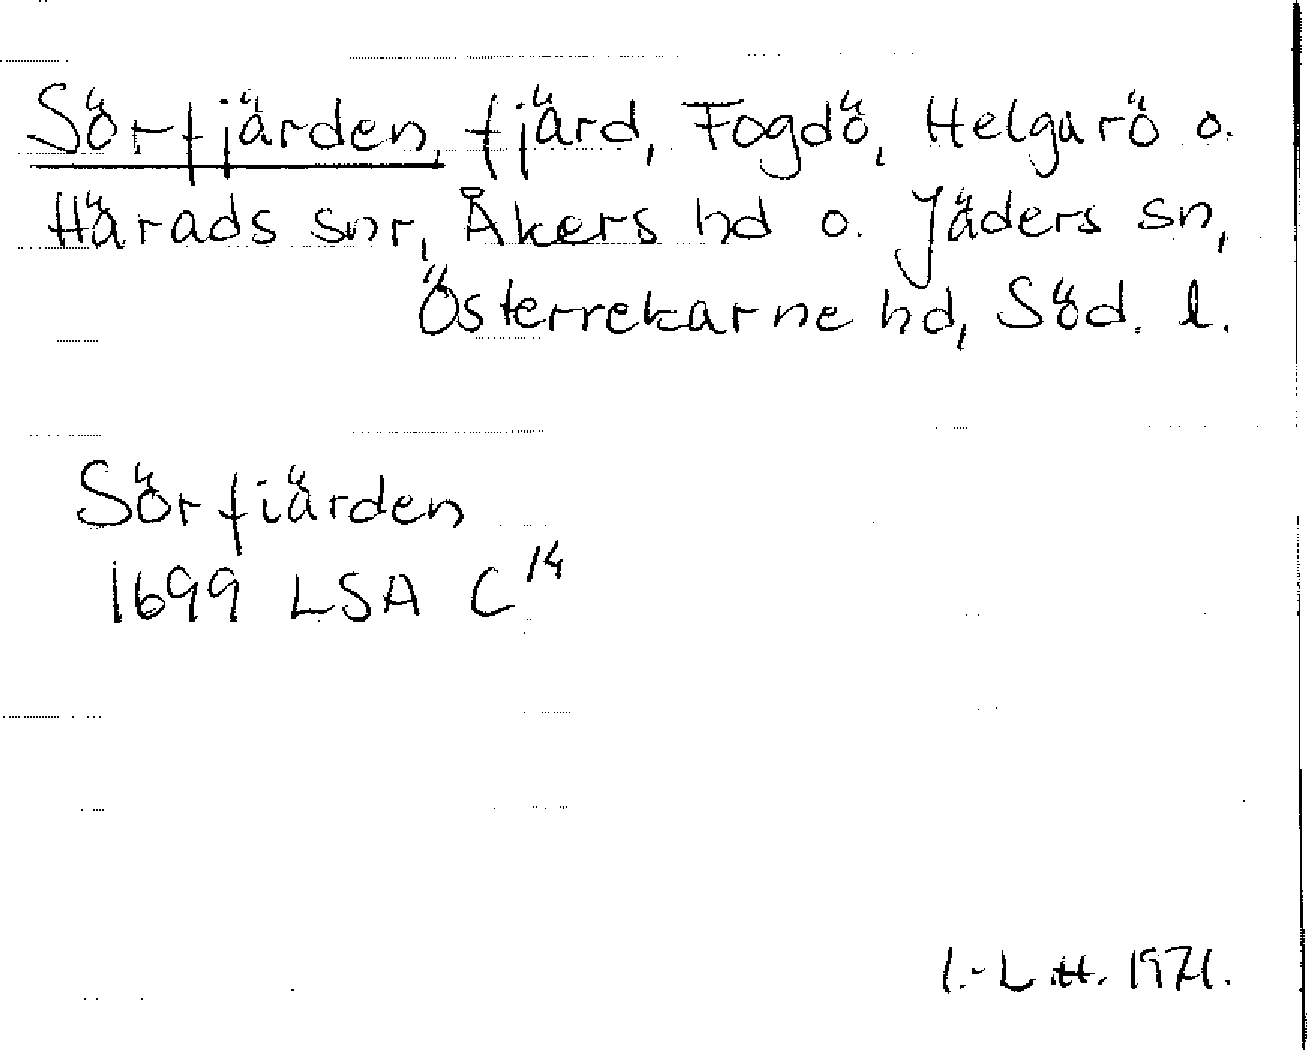 Sörfjärden, fjärd, Fogdö, Helgarö o.
Härads snr, Åkers hd o. Jäders sn,
Österrekarne hd, Söd. l.
Sörfiärden
1699 LSA C 14
I.-L H. 1971.